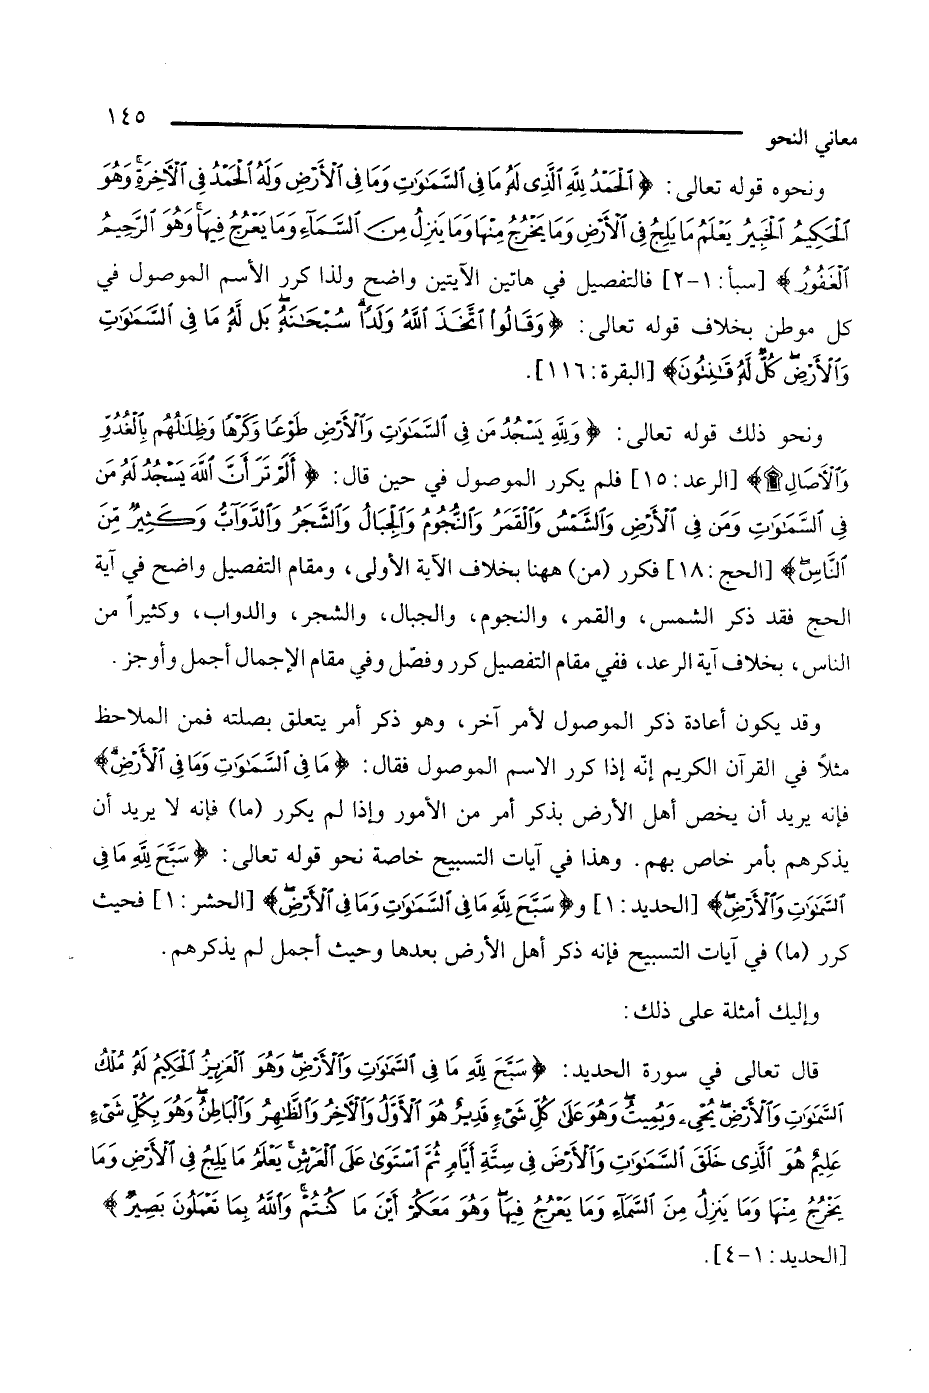 ١٤٥
معاني النحو
ونحوه قوله تعالى: ﴿ ٱلْحَمْدُ لِلَّهِ ٱلَّذِى لَهُۥ مَا فِى ٱلسَّمَٰوَٰتِ وَمَا فِى ٱلْأَرْضِ وَلَهُ ٱلْحَمْدُ فِى ٱلْأَخِرَةِۚ وَهُوَ
ٱلْحَكِيمُ ٱلْخَبِيرُ يَعْلَمُ مَا يَلِجُ فِى ٱلْأَرْضِ وَمَا يَخْرُجُ مِنْهَا وَمَا يَنزِلُ مِنَ ٱلسَّمَآءِ وَمَا يَعْرُجُ فِيهَاۚ وَهُوَ ٱلرَّحِيمُ
ٱلْغَفُورُ ﴾ [سبأ: ١-٢] فالتفصيل في هاتين الآيتين واضح ولذا كرر الأسم الموصول في
كل موطن بخلاف قوله تعالى: ﴿ وَقَالُوا۟ ٱتَّخَذَ ٱللَّهُ وَلَدًاۗ سُبْحَٰنَهُۥۖ بَل لَّهُۥ مَا فِى ٱلسَّمَٰوَٰتِ
وَٱلْأَرْضِۖ كُلٌّ لَّهُۥ قَٰنِتُونَ﴾ [البقرة: ١١٦].
ونحو ذلك قوله تعالى: ﴿ وَلِلَّهِ يَسْجُدُ مَن فِى ٱلسَّمَٰوَٰتِ وَٱلْأَرْضِ طَوْعًا وَكَرْهًا وَظِلَٰلُهُم بِٱلْغُدُوِّ
وَٱلْأَصَالِ۩﴾ [الرعد: ١٥] فلم يكرر الموصول في حين قال: ﴿ أَلَمْ تَرَ أَنَّ ٱللَّهَ يَسْجُدُ لَهُۥ مَن
فِى ٱلسَّمَٰوَٰتِ وَمَن فِى ٱلْأَرْضِ وَٱلشَّمْسُ وَٱلْقَمَرُ وَٱلنُّجُومُ وَٱلْجِبَالُ وَٱلشَّجَرُ وَٱلدَّوَآبُّ وَكَثِيرٌ مِّنَ
ٱلنَّاسِۖ﴾ [الحج: ١٨] فكرر (من) ههنا بخلاف الآية الأولى، ومقام التفصيل واضح في آية
الحج فقد ذكر الشمس، والقمر، والنجوم، والجبال، والشجر، والدواب، وكثيراً من
الناس، بخلاف آية الرعد، ففي مقام التفصيل كرر وفصّل وفي مقام الإجمال أجمل وأوجز.
وقد يكون أعادة ذكر الموصول لأمر آخر، وهو ذكر أمر يتعلق بصلته فمن الملاحظ
مثلاً في القرآن الكريم إنّه إذا كرر الاسم الموصول فقال: ﴿ مَا فِى ٱلسَّمَٰوَٰتِ وَمَا فِى ٱلْأَرْضِۗ﴾
فإنه يريد أن يخص أهل الأرض بذكر أمر من الأمور وإذا لم يكرر (ما) فإنه لا يريد أن
يذكرهم بأمر خاص بهم. وهذا في آيات التسبيح خاصة نحو قوله تعالى: ﴿ سَبَّحَ لِلَّهِ مَا فِى
ٱلسَّمَٰوَٰتِ وَٱلْأَرْضِۖ﴾ [الحديد: ١] و﴿ سَبَّحَ لِلَّهِ مَا فِى ٱلسَّمَٰوَٰتِ وَمَا فِى ٱلْأَرْضِۖ﴾ [الحشر: ١] فحيث
كرر (ما) في آيات التسبيح فإنه ذكر أهل الأرض بعدها وحيث أجمل لم يذكرهم.
وإليك أمثلة على ذلك:
قال تعالى في سورة الحديد: ﴿ سَبَّحَ لِلَّهِ مَا فِى ٱلسَّمَٰوَٰتِ وَٱلْأَرْضِۖ وَهُوَ ٱلْعَزِيزُ ٱلْحَكِيمُ لَهُۥ مُلْكُ
ٱلسَّمَٰوَٰتِ وَٱلْأَرْضِۖ يُحْىِۦ وَيُمِيتُۖ وَهُوَ عَلَىٰ كُلِّ شَىْءٍ قَدِيرٌ هُوَ ٱلْأَوَّلُ وَٱلْأَخِرُ وَٱلظَّٰهِرُ وَٱلْبَاطِنُۖ وَهُوَ بِكُلِّ شَىْءٍ
عَلِيمٌ هُوَ ٱلَّذِى خَلَقَ ٱلسَّمَٰوَٰتِ وَٱلْأَرْضَ فِى سِتَّةِ أَيَّامٍ ثُمَّ ٱسْتَوَىٰ عَلَى ٱلْعَرْشِۚ يَعْلَمُ مَا يَلِجُ فِى ٱلْأَرْضِ وَمَا
يَخْرُجُ مِنْهَا وَمَا يَنزِلُ مِنَ ٱلسَّمَآءِ وَمَا يَعْرُجُ فِيهَاۖ وَهُوَ مَعَكُمْ أَيْنَ مَا كُنتُمْۚ وَٱللَّهُ بِمَا تَعْمَلُونَ بَصِيرٌ ﴾
[الحديد: ١-٤].